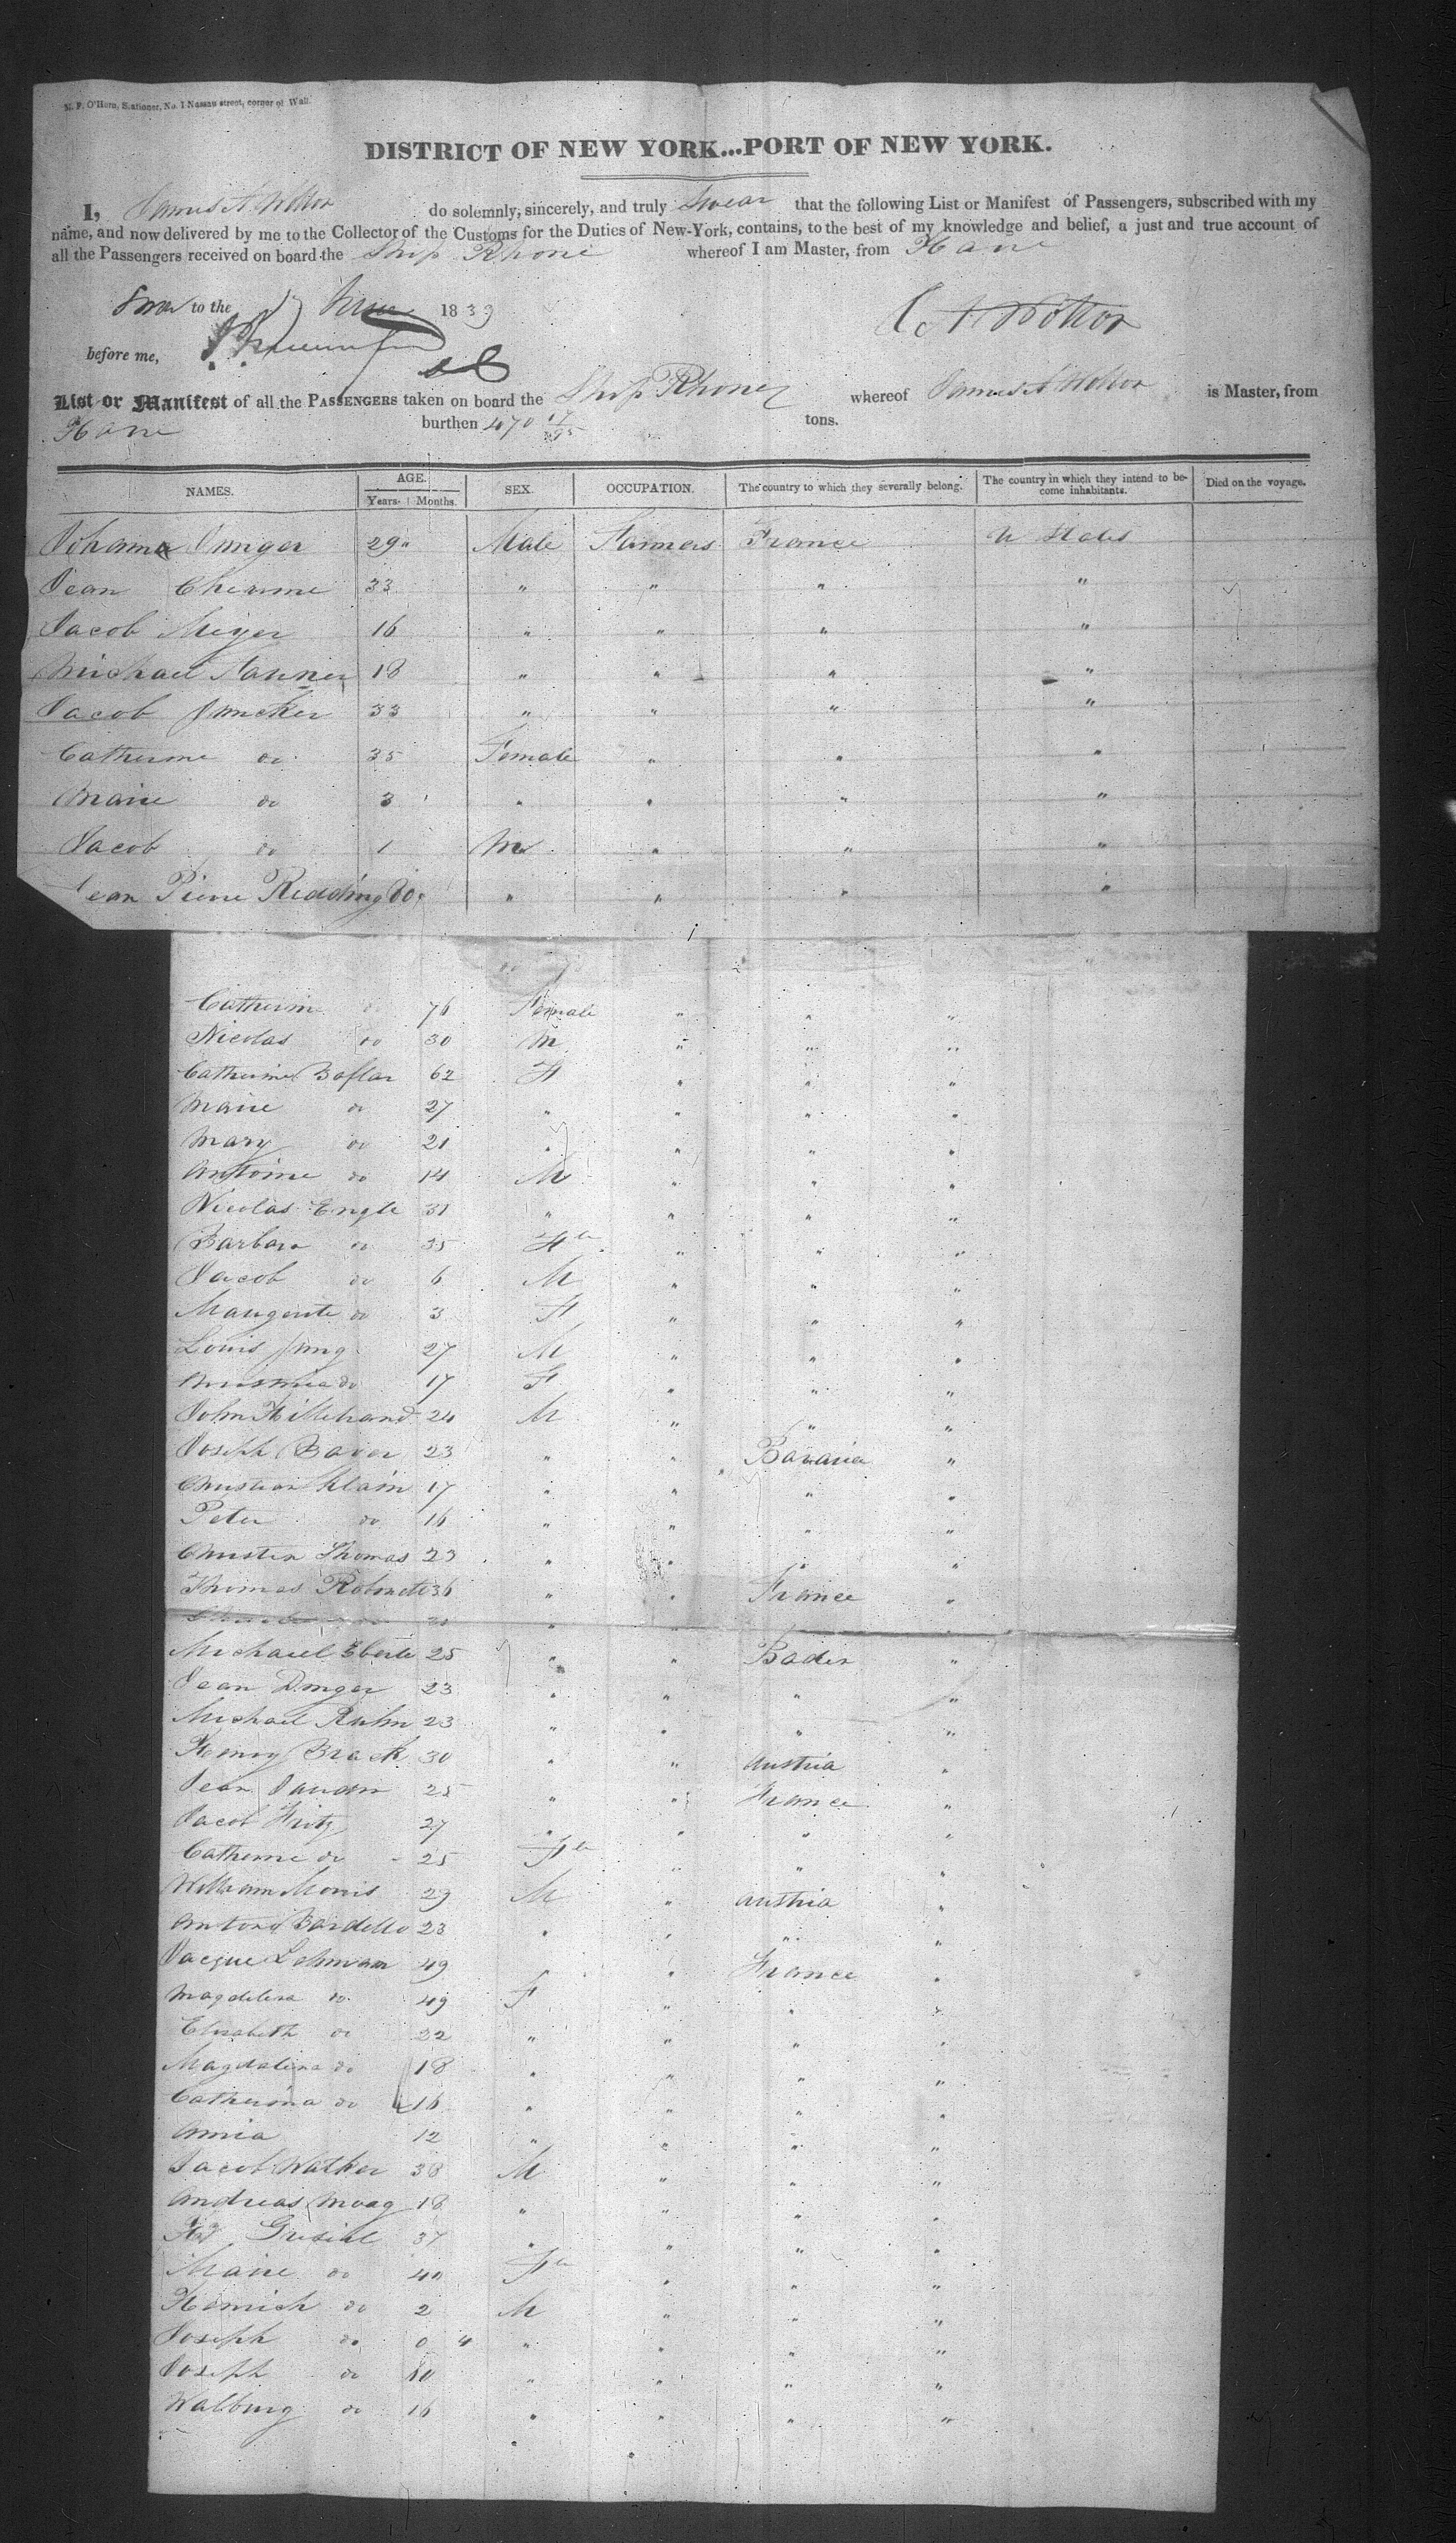 M. F. O'Hora, Stationer, No. 1 Nassau street, corner of Wall.
DISTRICT OF NEW YORK...PORT OF NEW YORK.
I, James A Wotton do solemnly, sincerely, and truly swear that the following List or Manifest of Passengers, subscribed with my
name, and now delivered by me to the Collector of the Customs for the Duties of New-York, contains, to the best of my knowledge and belief, a just and true account of
all the Passengers received on board the Ship Rhone whereof I am Master, from Havre
to the 17 June 1839
J A Wotton
before me,
List or Manifest of all the PASSENGERS taken on board the Ship Rhone whereof James A Wotton is Master, from
Havre burthen 470 17/95 tons.
NAMES. AGE. Years. Months. SEX. OCCUPATION. The country to which they severally belong. The country in which they intend to become inhabitants. Died on the voyage.
29 Male Farmers France U States
Jean 33 " " " "
Jacob Meyer 16 " " " "
Michael 18 " " " "
Jacob Juncker 33 " " " "
Catherine do 35 Female " " "
Marie do 3 " " " "
Jacob do 1 M " " "
Jean Pierre Redding 80 " " " "
Catherine do 76 Female " " "
Nicolas do 30 M " " "
Catherine 62 F " " "
Marie do 27 " " " "
Mary do 21 " " " "
Antoine do 14 M " " "
Nicolas Engle 31 " " " "
Barbara do 35 Fle " " "
Jacob do 6 M " " "
do 3 F " " "
Louis Jung 27 M " " "
do 17 F " " "
John Hillebrand 24 M " " "
Joseph Baver 23 " " Bavaria "
Christian Klain 17 " " " "
Peter do 16 " " " "
Thomas 23 " " " "
Thomas 36 " " France "
Michael Eberle 25 " " Baden "
Jean Dinger 23 " " " "
Michael Ruhn 23 " " " "
Henry Brack 30 " " Austria "
Jean 25 " " France "
Jacob Fritz 27 " " " "
Catherine do 25 Fle " " "
William Morris 29 M " Austria "
Antono Bardello 23 " " " "
Jacque Lehman 49 " " France "
Magdelena do 49 F " " "
Elisabeth do 22 " " " "
Magdalena do 18 " " " "
Catherina do 16 " " " "
Anna 12 " " " "
Jacob Walker 38 M " " "
Andreas Moag 18 " " " "
37 " " " "
Marie do 40 Fle " " "
Heinrich do 2 M " " "
Joseph do 0 4 " " " "
Joseph do 10 " " " "
Walburg do 16 " " " "